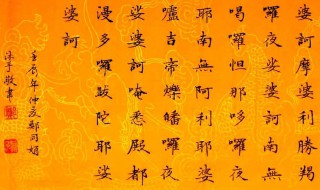 婆訶摩婆利勝羯
囉夜娑婆訶南無
喝囉怛那哆囉夜
耶南無阿利耶婆
嚧吉帝爍皤囉夜
娑婆訶唵悉殿都
漫多囉跋陀耶娑
婆訶
壬辰年仲夏鄭司娟
沐手敬書